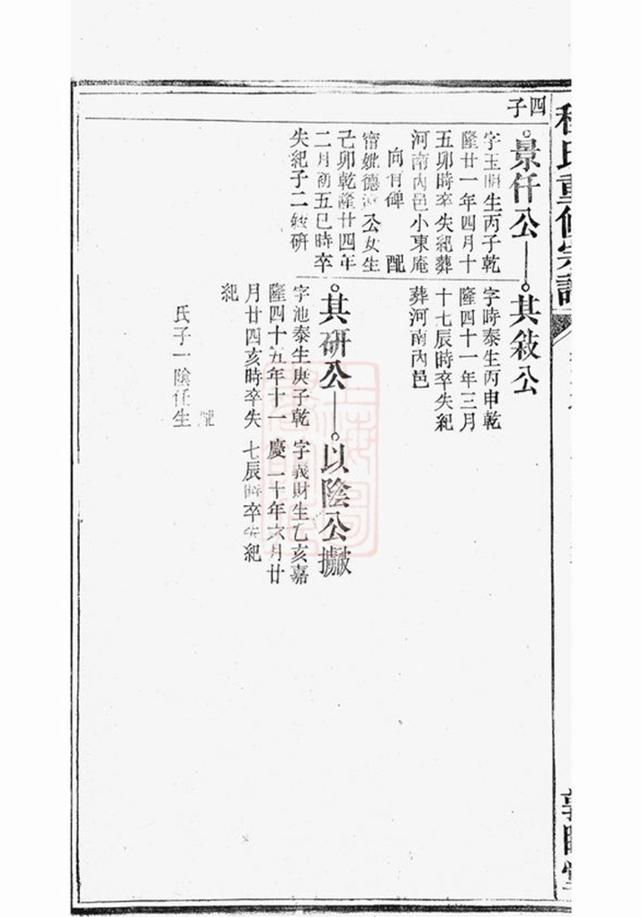 程氏重修宗譜
敦睦堂
四子
景仟公
字玉開生丙子乾
隆廿一年四月十
五卯時卒失紀葬
河南內邑小東庵
向有碑 配
甯妣德公女生
己卯乾隆廿四年
二月初五巳時卒
失紀子二敍硏
其敍公
字時泰生丙申乾
隆四十一年三月
十七辰時卒失紀
葬河南內邑
其硏公
字池泰生庚子乾
隆四十五年十一
月廿四亥時卒失
紀
配
氏子一陰仟生
以陰公
字義財生乙亥嘉
慶二十年六月廿
七辰時卒失紀